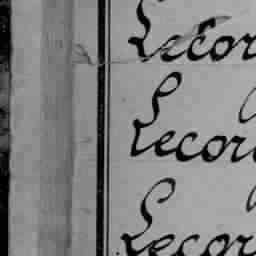 Lecor
Lecor
Lecor